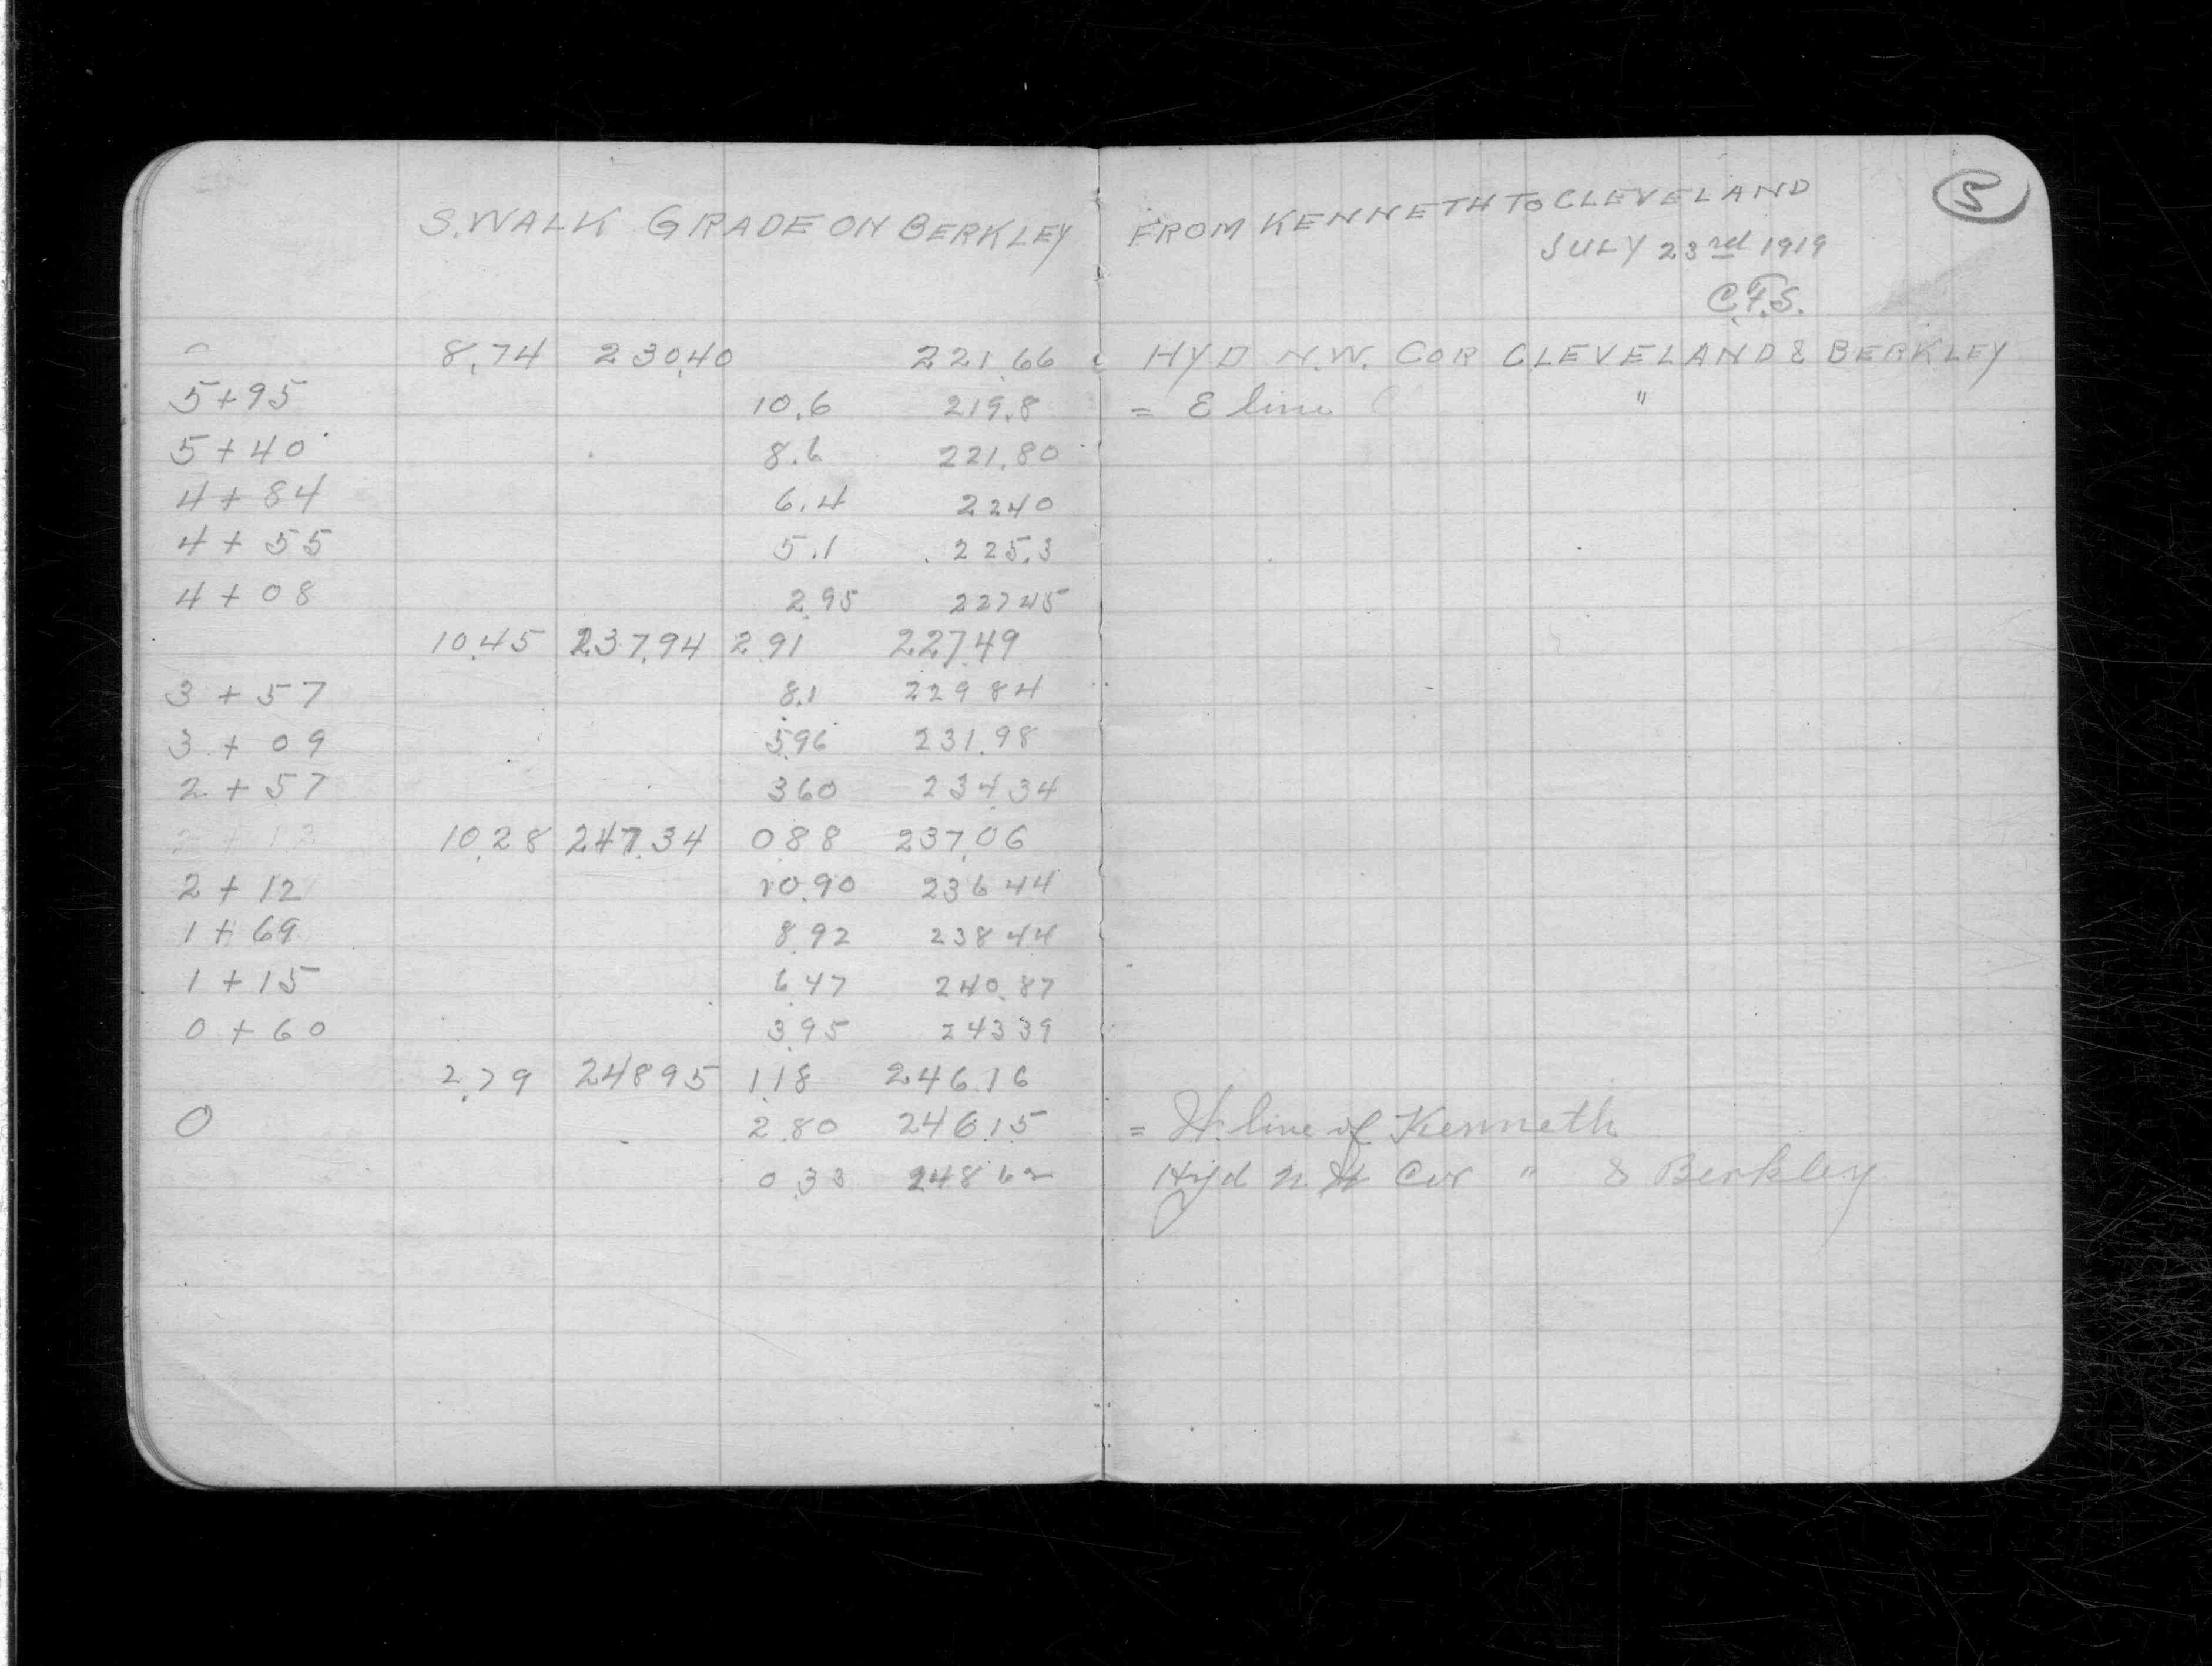 S. WALK GRADE ON BERKLEY FROM KENNETH TO CLEVELAND
5
JULY 23rd 1919
C.F.S.
8.74 230.40 221.66 HYD N.W. COR CLEVELAND & BERKLEY
5+95 10.6 219.8 = E line "
5+40 8.6 221.80
4+84 6.4 2240
4+55 5.1 225.3
4+08 2.95 22745
10.45 237.94 2.91 227.49
3+57 8.1 22984
3+09 5.96 231.98
2+57 360 234.34
10.28 247.34 088 237.06
2+12 10.90 23644
1+69 8.92 23844
1+15 6.47 240.87
0+60 3.95 24339
2.79 24895 1.18 246.16
0 2.80 246.15 = W. line of Kenneth
0.33 248 62 Hyd N W Cor " & Berkley